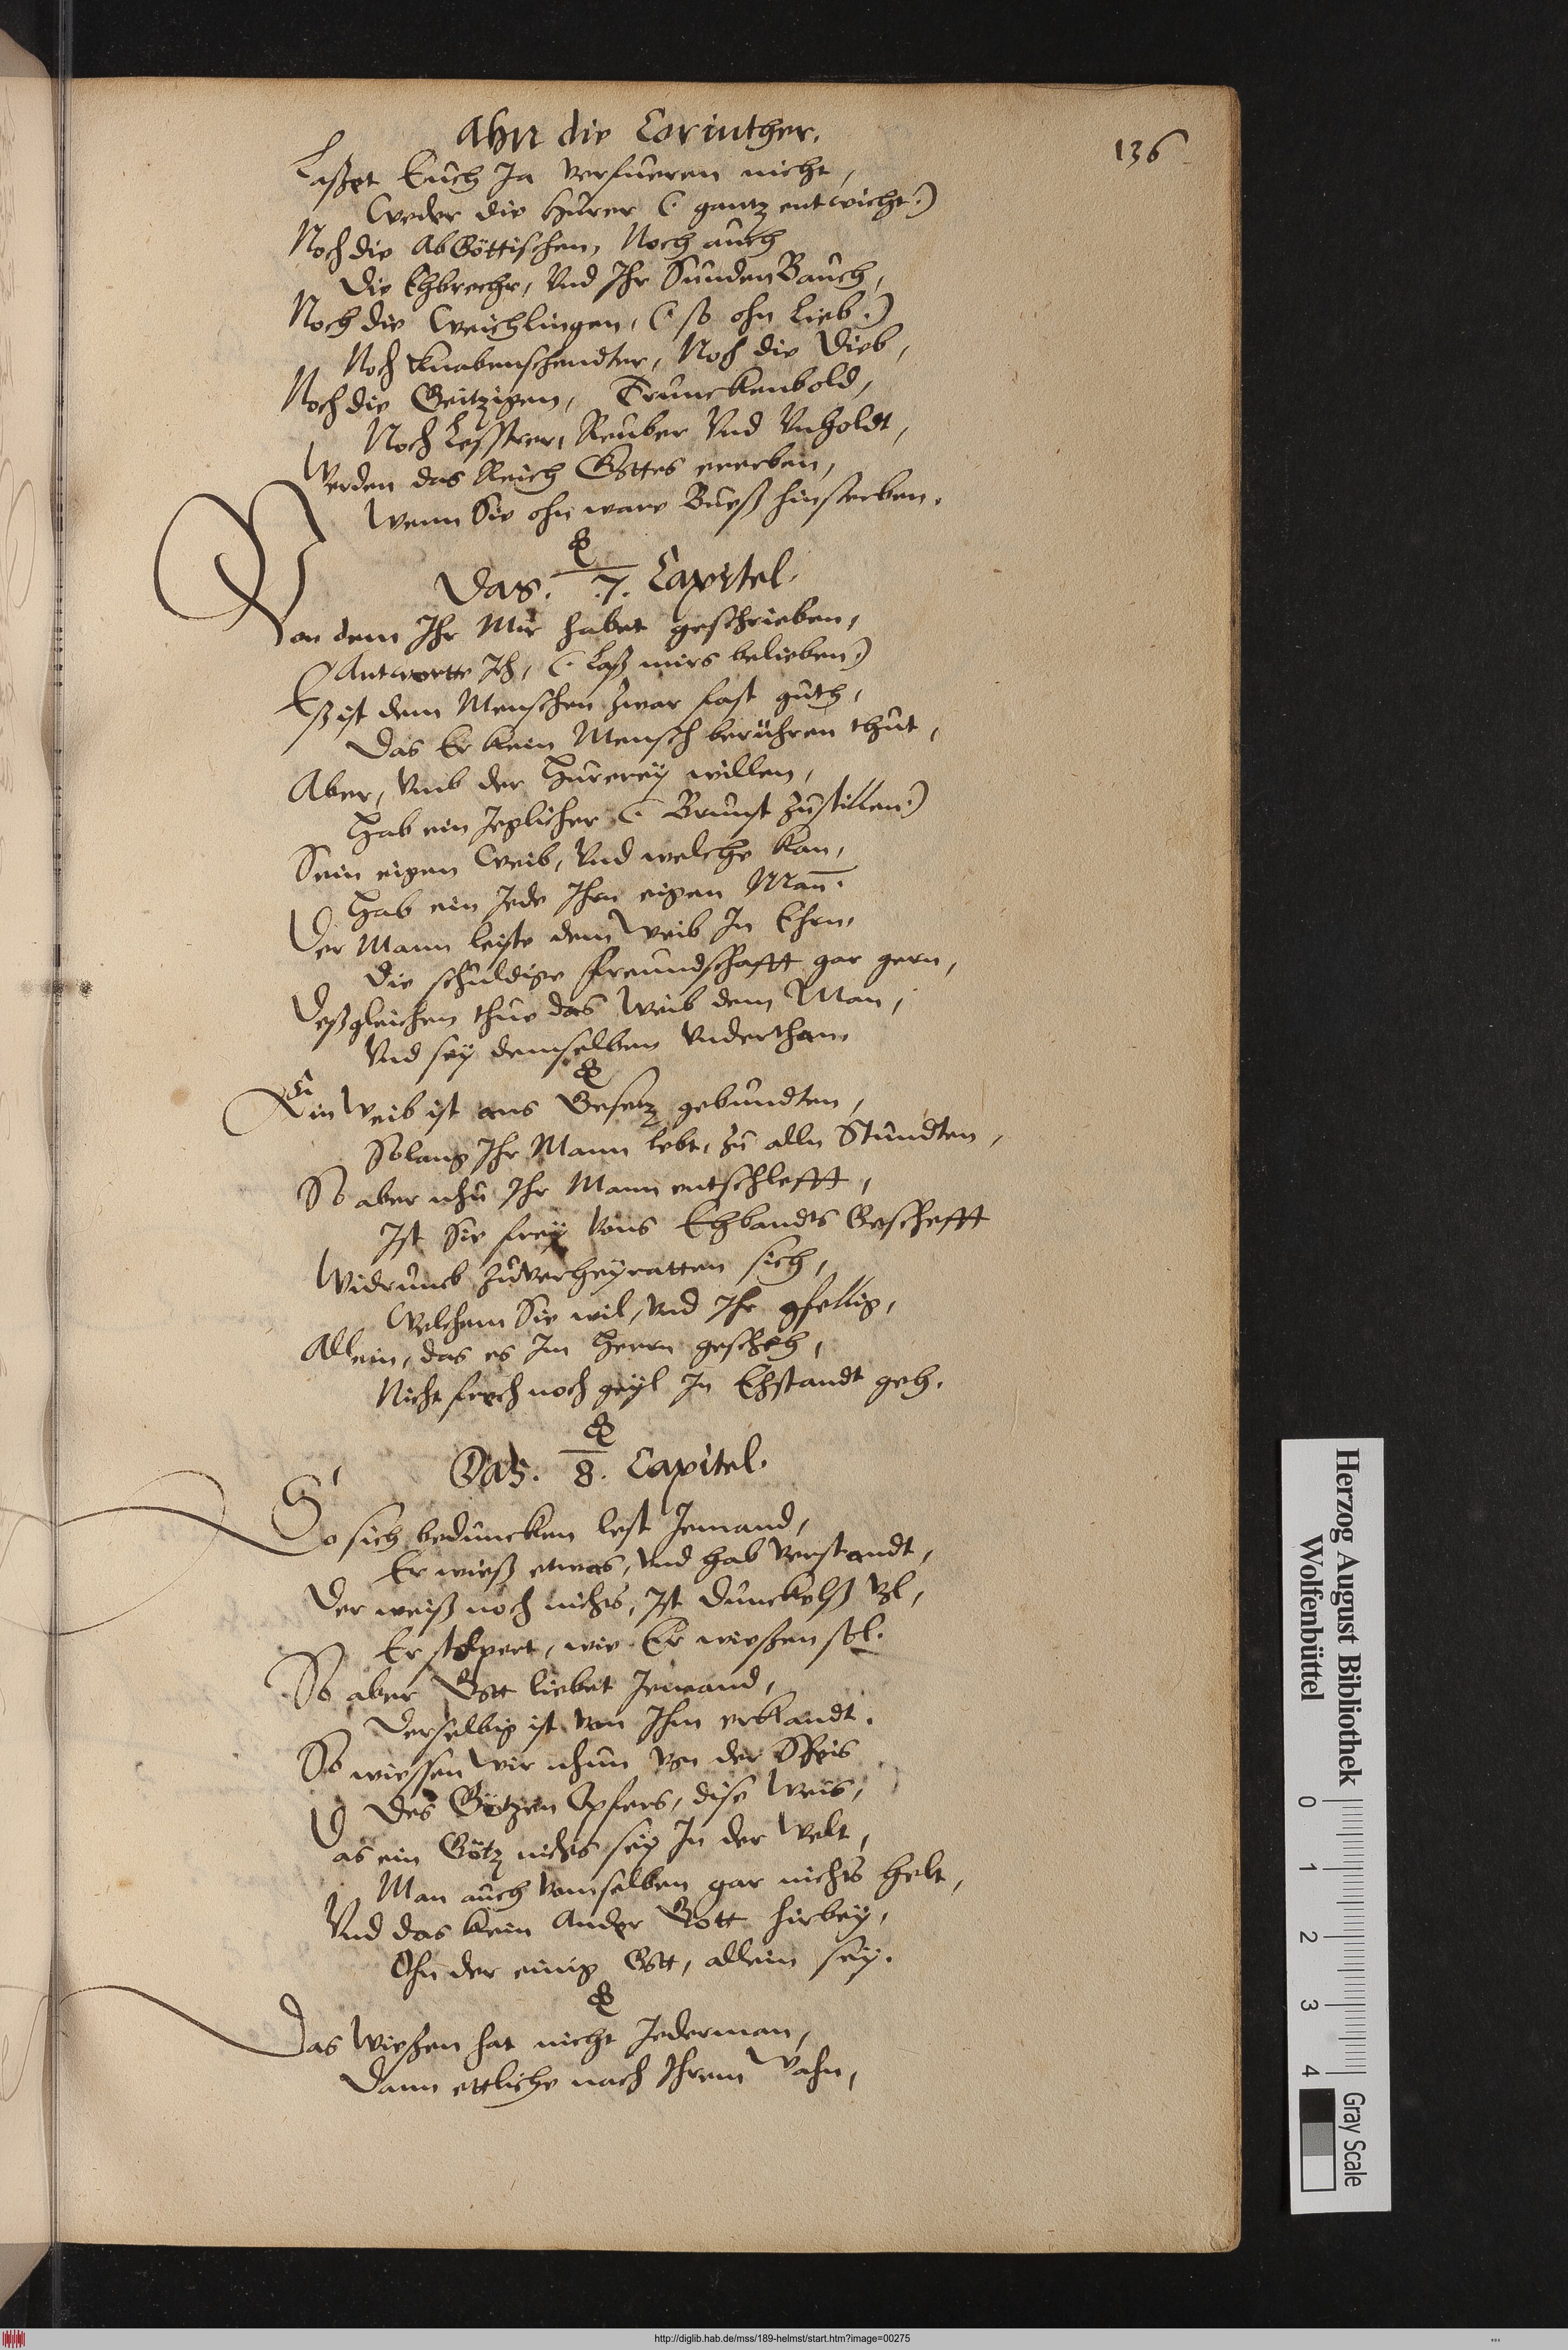 Ahn die Corinther.
136
Laßet Euch Ja verfueren nicht,
Weder die Hurer (: gantz entwicht:)
Noch die Abgöttischen, Noch auch
Die Ehbrecher, Vnd Ihr SundenBauch,
Noch die Weichlingen, (: so ohn Lieb:)
Noch Knabenschendter, Noch die Dieb,
Noch die Geitzigen, Trunckenbold,
Noch Lesstrer, Reuber Vnd Vnholdt,
Werden das Reich Gottes ererben,
Wenn Sie ohn ware Bueß hinsterben.
Das. 7. Capitel.
Von dem Ihr Mir habet geschrieben,
Antwortte Ich, (: Laß mirs belieben:)
Eß ist dem Menschen zwar fast guth,
Das Er kein Mensch berühren thut,
Aber, Vmb der Hurerey willen,
Hab ein Jeglicher (: Brunst zustillen:)
Sein eigen Weib, Vnd welche kan,
Hab ein Jede Ihrn eigen Mañ.
Der Mann leiste dem Weib In Ehrn,
Die schuldige Freundschafft gar gern,
Deßgleichen thue das Weib dem Man,
Vnd sey demselben Vnderthan.
Ein Weib ist ans Gesetz gebundten,
Solang Ihr Mann lebt, zu alln Stundten,
So aber nhu Ihr Mann entschlefft,
Ist Sie frey Vons Ehbandts Geschefft
Widrumb zuverheyratten sich,
Welchem Sie wil, Vnd Ihr gfellig,
Allein, das es Im Herrn gescheh,
Nicht frech noch geyl In Ehstandt geh.
Das. 8. Capitel.
So sich beduncken lest Jemand,
Er wieß etwas, Vnd hab Verstandt,
Der weiß noch nichts, Ist Dunckelß Vol,
Er stolpert, wie Er wießen sol.
So aber Gott liebet Jemand,
Derselbig ist von Ihm erkandt.
So wiessen Wir nhun Von der Speis
Des Götzen Opfers, dise Weis,
Das ein Götz nichts sey In der Welt,
Man auch Vomselben gar nichts helt,
Vnd das kein Ander Gott hirbey,
Ohn der einig Gott, allein sey.
Das Wießen hat nicht Jederman,
Dann ettliche nach Ihrem Wahn,
Herzog August Bibliothek
Wolfenbüttel
0 1 2 3 4
Gray Scale
http://diglib.hab.de/mss/189-helmst/start.htm?image=00275